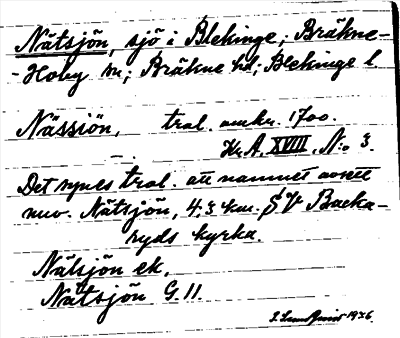 Nätsjön, sjö i Blekinge; Bräkne-
-Hoby sn; Bräkne hd; Blekinge l.
Nässiön, trol. omkr. 1700.
Kr. A. XVIII. N:o 3.
Det synes trol. att namnet avsett
nuv. Nätsjön, 4,3 km. S V Backa-
ryds kyrka.
Nätsjön ek.
Nätsjön G. 11.
1926.